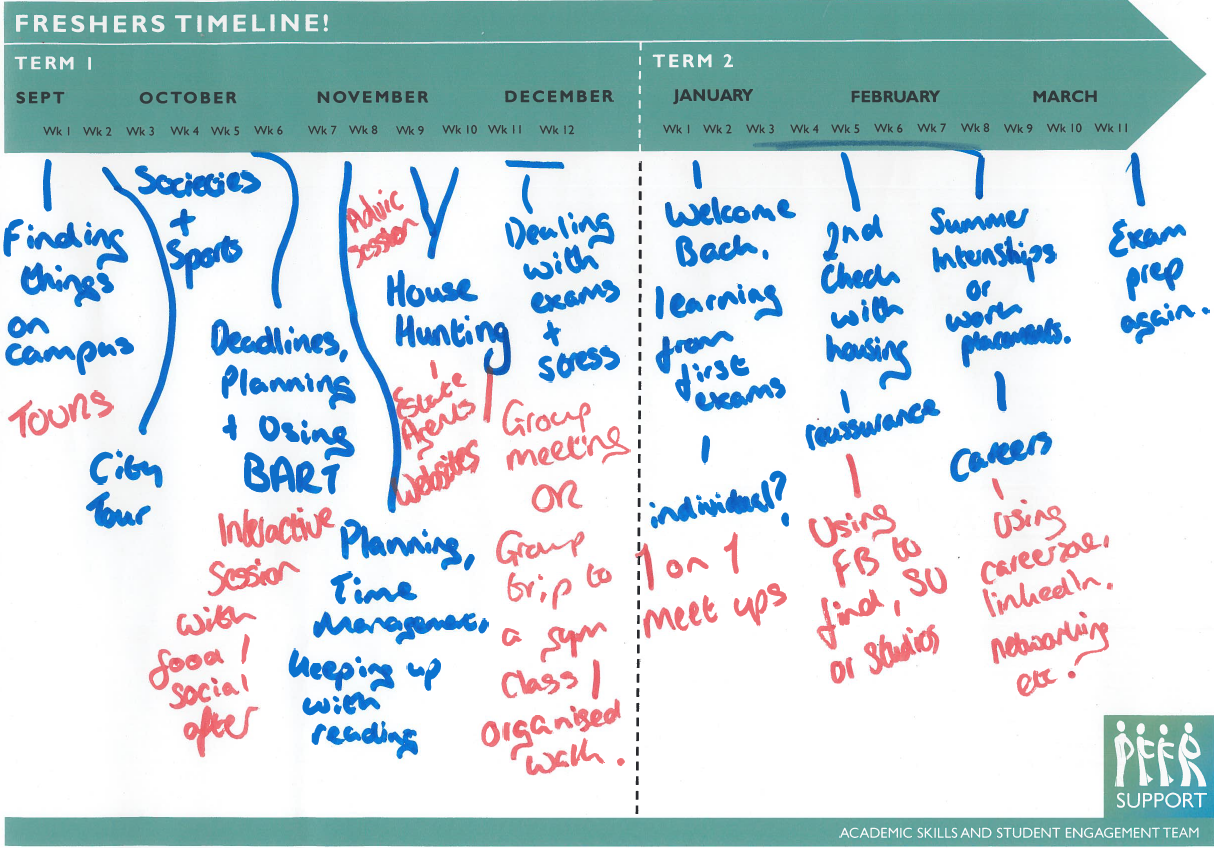 FRESHERS TIMELINE!
TERM 1
TERM 2
SEPT
OCTOBER
NOVEMBER
DECEMBER
JANUARY
FEBRUARY
MARCH
Wk 1 Wk 2 Wk 3 Wk 4 Wk 5 Wk 6 Wk 7 Wk 8 Wk 9 Wk 10 Wk 11 Wk 12
Wk 1 Wk 2 Wk 3 Wk 4 Wk 5 Wk 6 Wk 7 Wk 8 Wk 9 Wk 10 Wk 11
Finding
things
on
campus
TOURS
Societies
+
Sports
City
Tour
Deadlines,
Planning
+ Using
BART
Interactive
Session
with
food /
social
after
Advic
Session
House
Hunting
Estate
Agents
Websites
Planning,
Time
Management,
keeping up
with
reading
Dealing
with
exams
+
stress
Group
meeting
OR
Group
trip to
a gym
class /
organised
walk.
Welcome
Back,
learning
from
first
exams
individual?
1 on 1
meet ups
2nd
Check
with
housing
reassurance
Using
FB to
find, SU
or Studios
Summer
Internships
or
work
placements.
Careers
Using
careerzone,
linkedIn.
networking
etc.
Exam
prep
again.
PEER
SUPPORT
ACADEMIC SKILLS AND STUDENT ENGAGEMENT TEAM